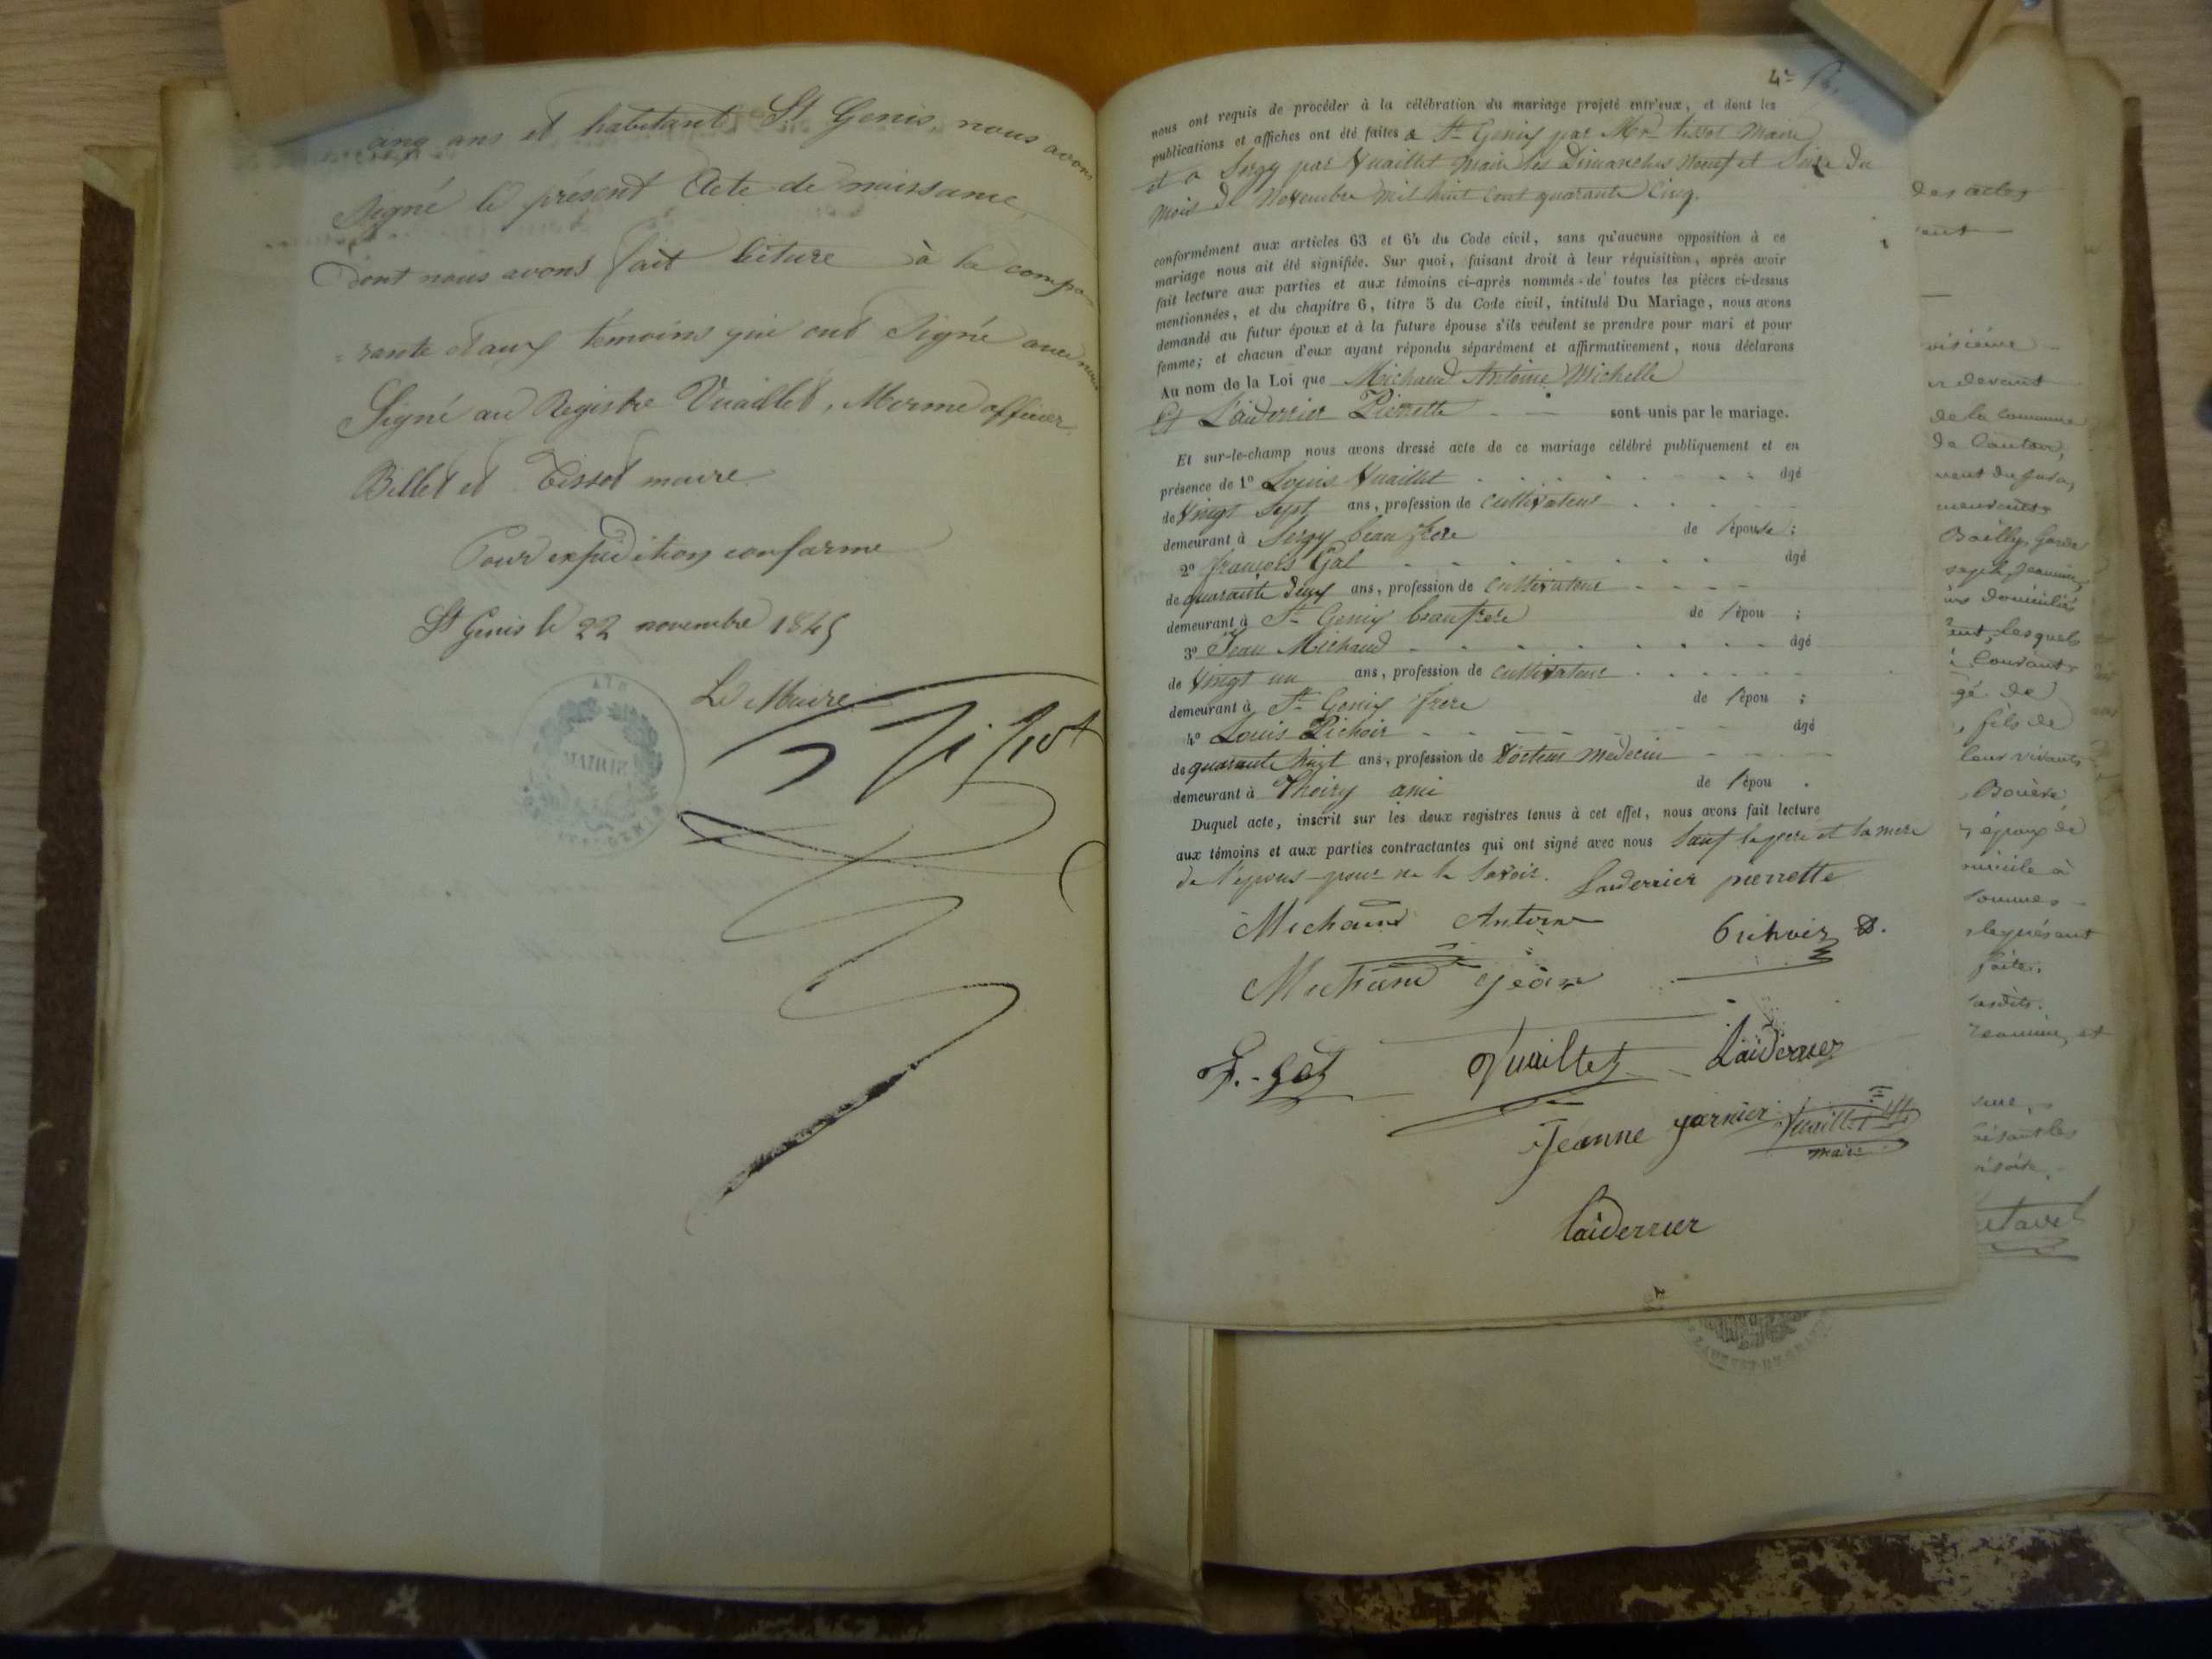 cinq ans et habitant St Genis, nous avons
signé le présent Acte de naissance,
Dont nous avons fait lecture à la compa-
rante et aux témoins qui ont signé avec nous
Signé au Registre Vuaillet, Merme officier
Billet et Tissot maire
Pour expédition conforme
St Genis le 22 novembre 1845
Le Maire
Tissot
MAIRIE
4e
nous ont requis de procéder à la célébration du mariage projeté entr'eux, et dont les
publications et affiches ont été faites a St Genix par Mr tissot Maire
et a Sergy par Vuaillet maire les Dimanches Neuf et Seize du
mois de Novembre mil huit Cent quarante Cinq.
conformément aux articles 63 et 64 du Code civil, sans qu'aucune opposition à ce
mariage nous ait été signifiée. Sur quoi, faisant droit à leur réquisition, après avoir
fait lecture aux parties et aux témoins ci-après nommés de toutes les pièces ci-dessus
mentionnées, et du chapitre 6, titre 5 du Code civil, intitulé Du Mariage, nous avons
demandé au futur époux et à la future épouse s'ils veulent se prendre pour mari et pour
femme; et chacun d'eux ayant répondu séparément et affirmativement, nous déclarons
Au nom de la Loi que Michaud Antoine Michelle
Et Laiderrier Pierrette sont unis par le mariage.
Et sur-le-champ nous avons dressé acte de ce mariage célébré publiquement et en
présence de 1º Louis Vuaillet âgé
de Vingt Sept ans, profession de Cultivateur
demeurant à Sergy beau frere de l'épouse ;
2º francois Gal âgé
de quarante deux ans, profession de Cultivateur
demeurant à St Genix beau frere de l'épou ;
3º Jean Michaud âgé
de Vingt un ans, profession de Cultivateur
demeurant à St Genix frere de l'épou ;
4º Louis Pichoir âgé
de quarante huit ans, profession de Docteur medecin
demeurant à Thoiry ami de l'épou .
Duquel acte, inscrit sur les deux registres tenus à cet effet, nous avons fait lecture
aux témoins et aux parties contractantes qui ont signé avec nous Sauf le pere et la mere
de l'epous pour ne le Savoir. Laiderrier pierrette
Michaud Antoine
Michaud jean
F. Gal Vuaillet Laiderrier
Jeanne garnier Vuaillet
maire
Laiderrier
des actes
devant
de la commune
de Canton,
Bailly, Garde
domiciliés
lesquels
gé de
, fils de
leur vivant
, époux de
domicile à
sommes